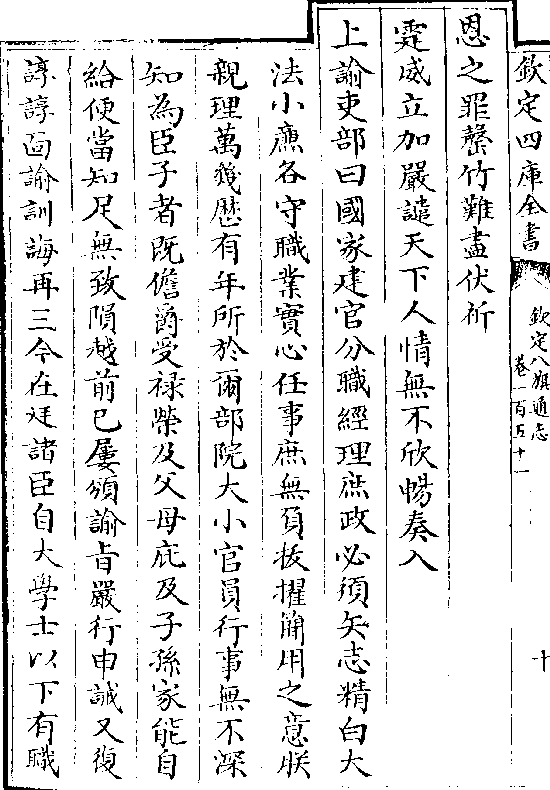 欽定四庫全書
欽定八旗通志
卷一百五十一
十
恩之罪罄竹難盡伏祈
霆威立加嚴譴天下人情無不欣暢奏入
上諭吏部曰國家建官分職經理庶政必須矢志精白大
法小廉各守職業實心任事庶無負拔擢簡用之意朕
親理萬幾歷有年所於爾部院大小官員行事無不深
知為臣子者既儋爵受祿榮及父母庇及子孫家能自
給便當知足無致隕越前已屢頒諭旨嚴行申誡又復
諄諄面諭訓誨再三今在廷諸臣自大學士以下有職